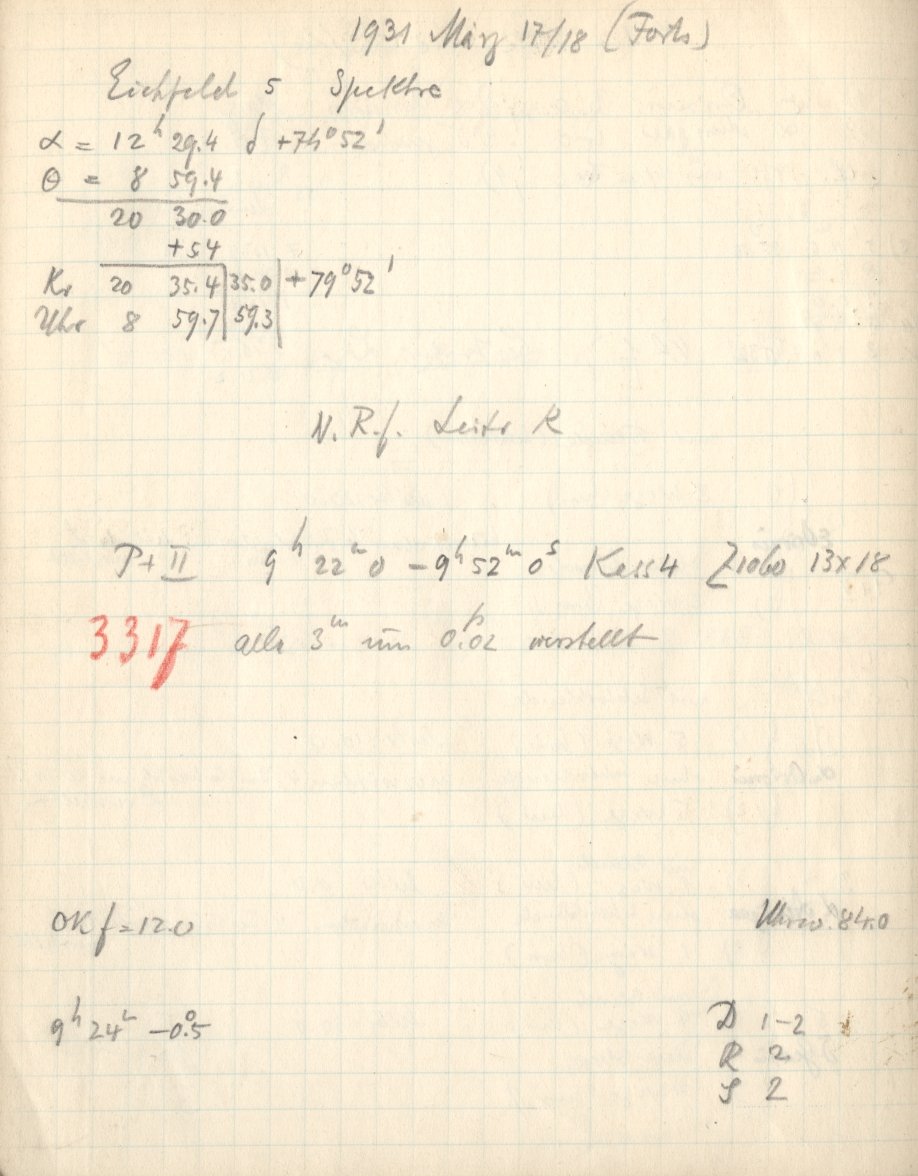 1931 März 17/18 (Forts)
Eichfeld 5 Spektra
α = 12ʰ 29.4 δ +74°52'
θ = 8 59.4
20 30.0
+5.4
Kr 20 35.4 35.0 +79°52'
Uhr 8 59.7 59.3
N. R.f. Leitr R
P + II 9ʰ 22ᵐ 0 – 9ʰ 52ᵐ 0ˢ Kass 4 Z1060 13x18
3317 alle 3ᵐ um 0.02 verstellt
OK f = 12.0
Uhrw. 84.0
9ʰ 24ᵐ –0°.5
D 1–2
R 2
S 2